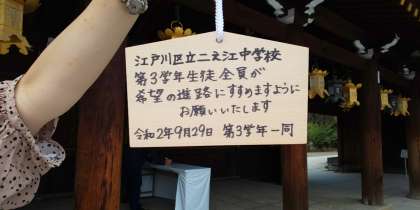 江戸川区立二之江中学校
第3学年生徒全員が
希望の進路にすすめますように
お願いいたします
令和2年9月29日 第3学年一同